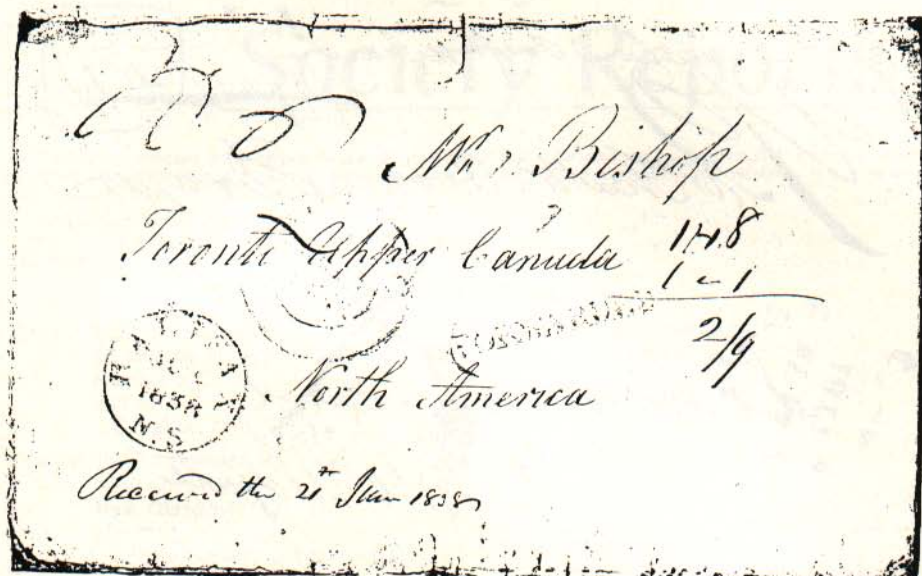 Bishop
Toronto Upper Canada
1 ~ 1
2/9
HALIFAX
1838
N.S
North America
Received the 21 June 1838